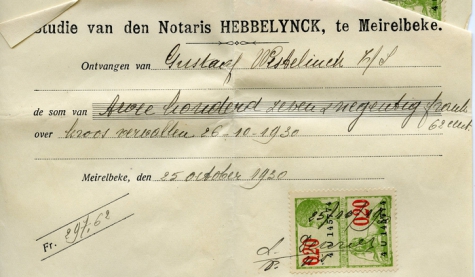 Studie van den Notaris HEBBELYNCK, te Meirelbeke.
Ontvangen van Gustaaf
de som van Twee honderd zeven negentig frank
62 cent.
over kroos vervallen 26-10-1930
Meirelbeke, den 25 october 1930
Fr. 297,62
0.20
0.20
25/10/30